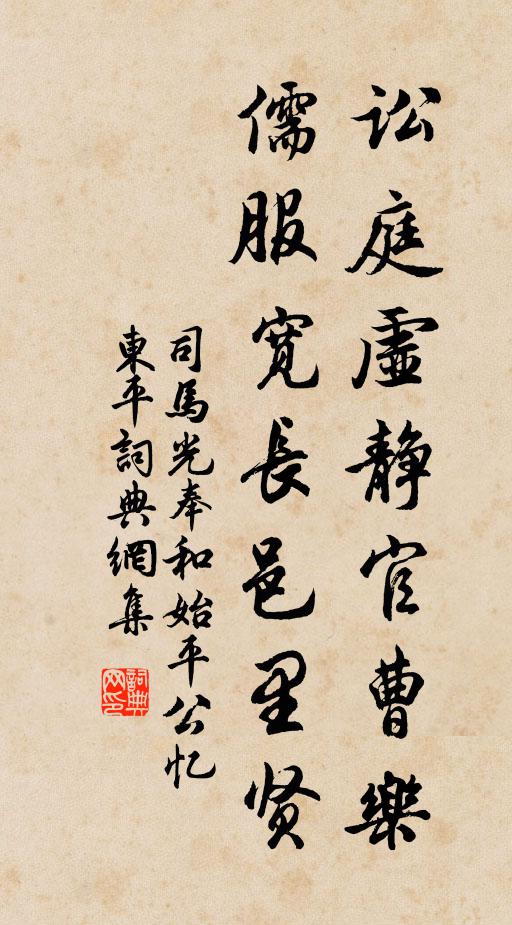 讼庭虚静官曹樂
儒服宽長邑里贤
司馬光奉和始平公忆
東平詞典網集
詞典网印